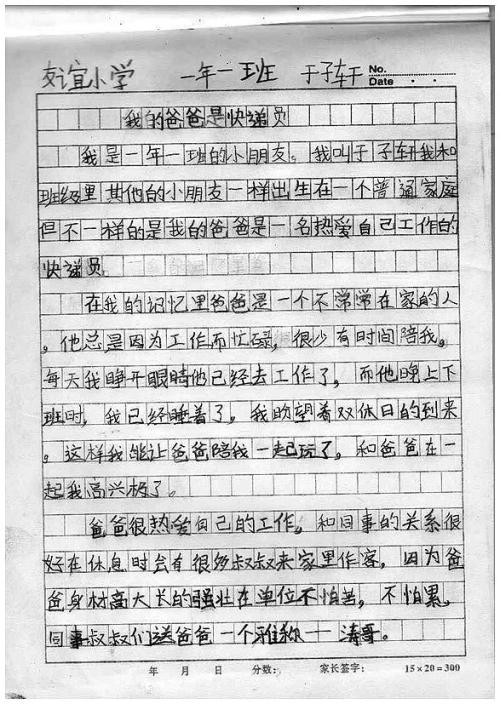 友谊小学 一年一班 于子轩 No.
Date · ·
我的爸爸是快递员
我是一年一班的小朋友。我叫于子轩我和
班级里其他的小朋友一样出生在一个普通家庭
但不一样的是我的爸爸是一名热爱自己工作的
快递员
在我的记忆里爸爸是一个不常常在家的人
。他总是因为工作而忙碌，很少有时间陪我。
每天我睁开眼睛他已经去工作了，而他晚上下
班时，我已经睡着了。我盼望着双休日的到来
。这样我能让爸爸陪我一起玩了，和爸爸在一
起我高兴极了。
爸爸很热爱自己的工作，和同事的关系很
好在休息时会有很多叔叔来家里作客，因为爸
爸身材高大长的强壮在单位不怕苦，不怕累，
同事叔叔们送爸爸一个雅称——涛哥。
年 月 日 分数： 家长签字： 15×20=300